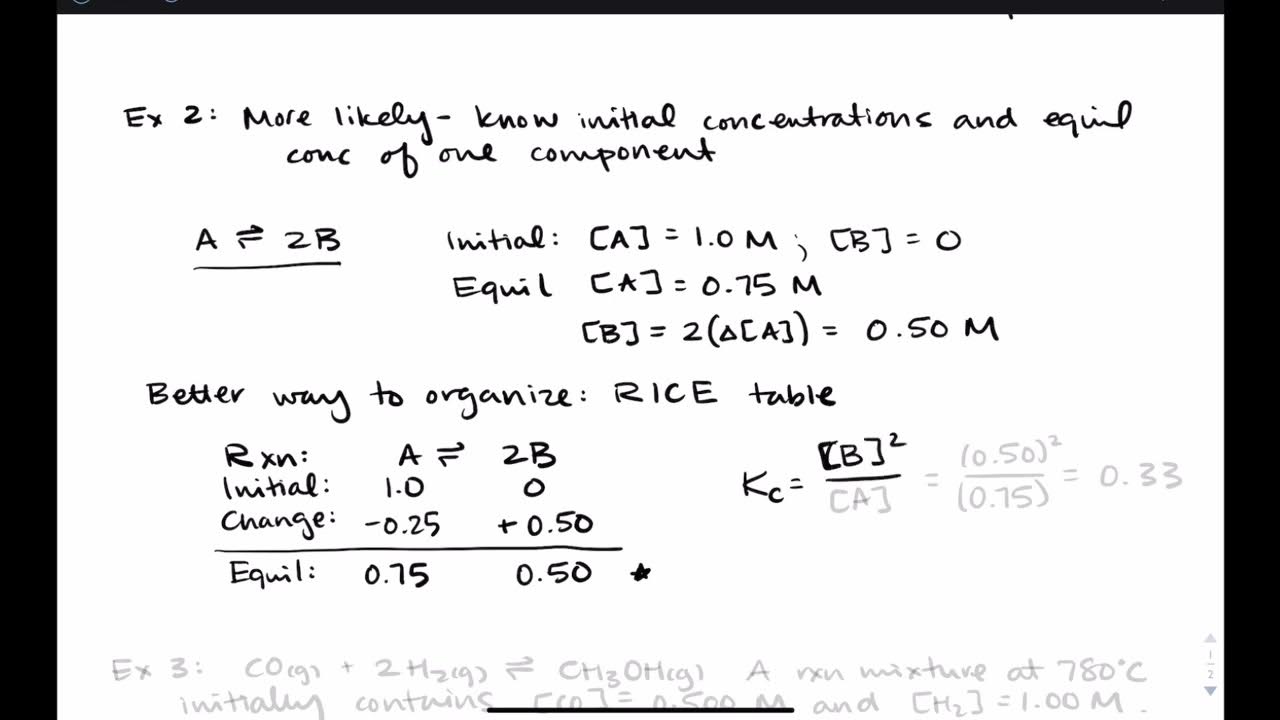 Ex 2: More likely - know initial concentrations and equil
conc of one component
A ⇌ 2B
Initial: [A] = 1.0 M ; [B] = 0
Equil [A] = 0.75 M
[B] = 2(Δ[A]) = 0.50 M
Better way to organize: RICE table
Rxn: A ⇌ 2B
Initial: 1.0 0
Change: -0.25 +0.50
Equil: 0.75 0.50 ★
Kc = [B]² / [A] = (0.50)² / (0.75) = 0.33
Ex 3: CO(g) + 2H₂(g) ⇌ CH₃OH(g) A rxn mixture at 780°C
initially contains [CO] = 0.500 M and [H₂] = 1.00 M.
1
2